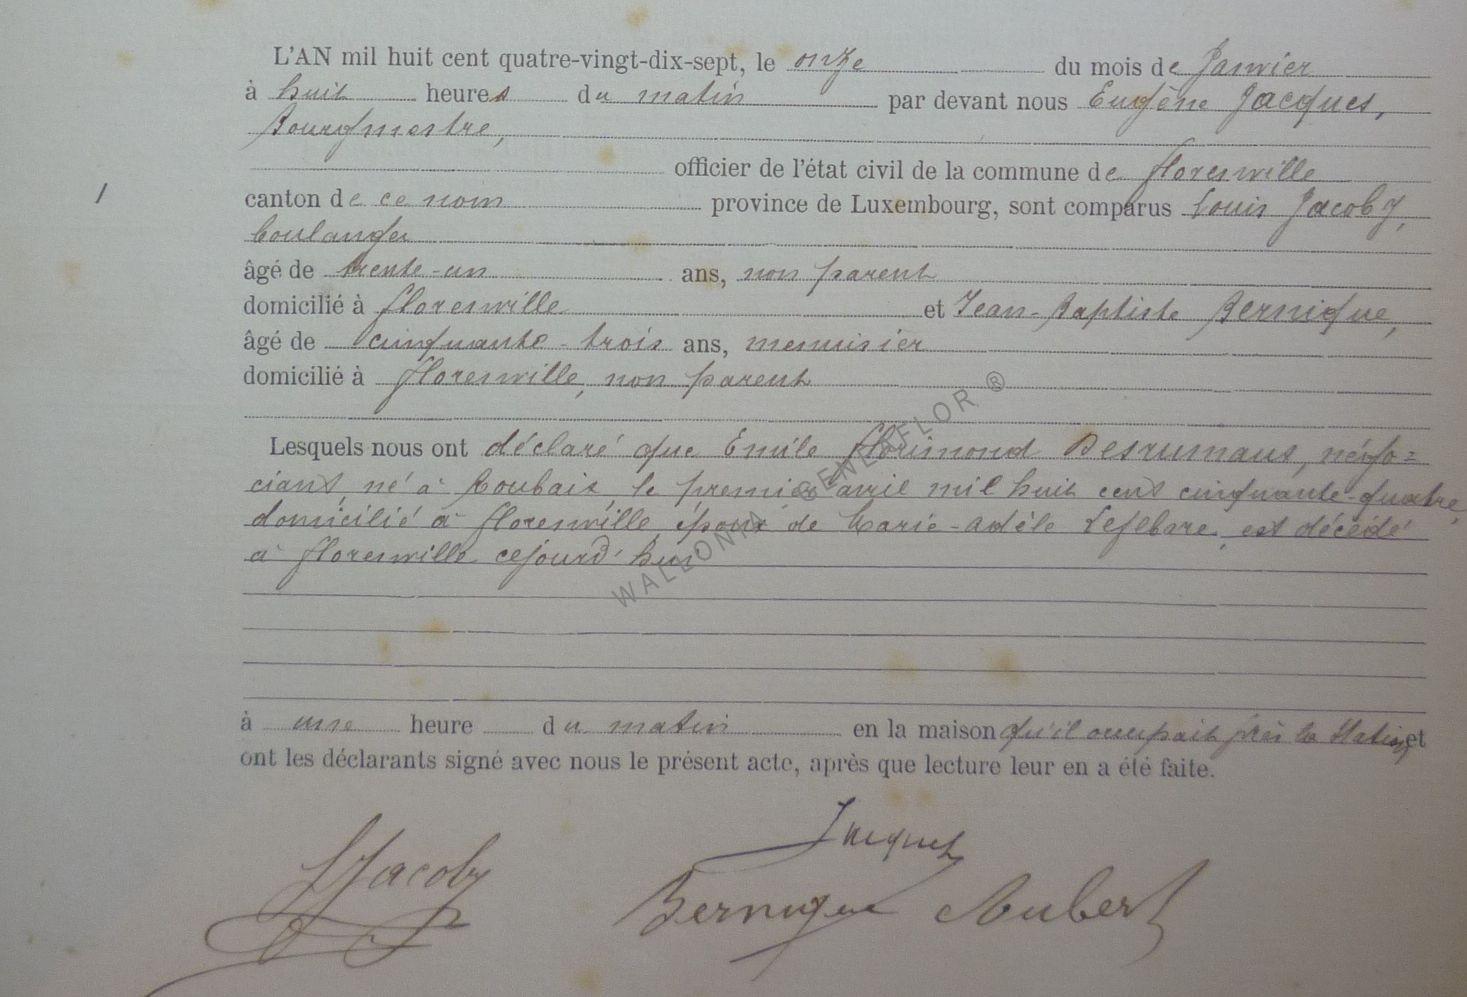 L'AN mil huit cent quatre-vingt-dix-sept, le onze du mois de Janvier
à huit heures du matin par devant nous Eugène Jacques,
Bourgmestre,
officier de l'état civil de la commune de florenville
canton de ce nom province de Luxembourg, sont comparus Louis Jacoby,
boulanger
/
âgé de trente-un ans, non parent
domicilié à florenville et Jean-Baptiste Bernique,
âgé de cinquante-trois ans, menuisier
domicilié à florenville, non parent
Lesquels nous ont déclaré que Emile florimond Desrumaux, négo=
ciant, né à Roubaix, le premier avril mil huit cent cinquante-quatre,
domicilié à florenville, époux de Marie-Adèle Lefebvre, est décédé
à florenville cejourd'hui
à une heure du matin en la maison qu'il occupait près la Station, et
ont les déclarants signé avec nous le présent acte, après que lecture leur en a été faite.
Jacques
LJacoby
Bernique Aubert
WALLONIA GENEAFLOR ®